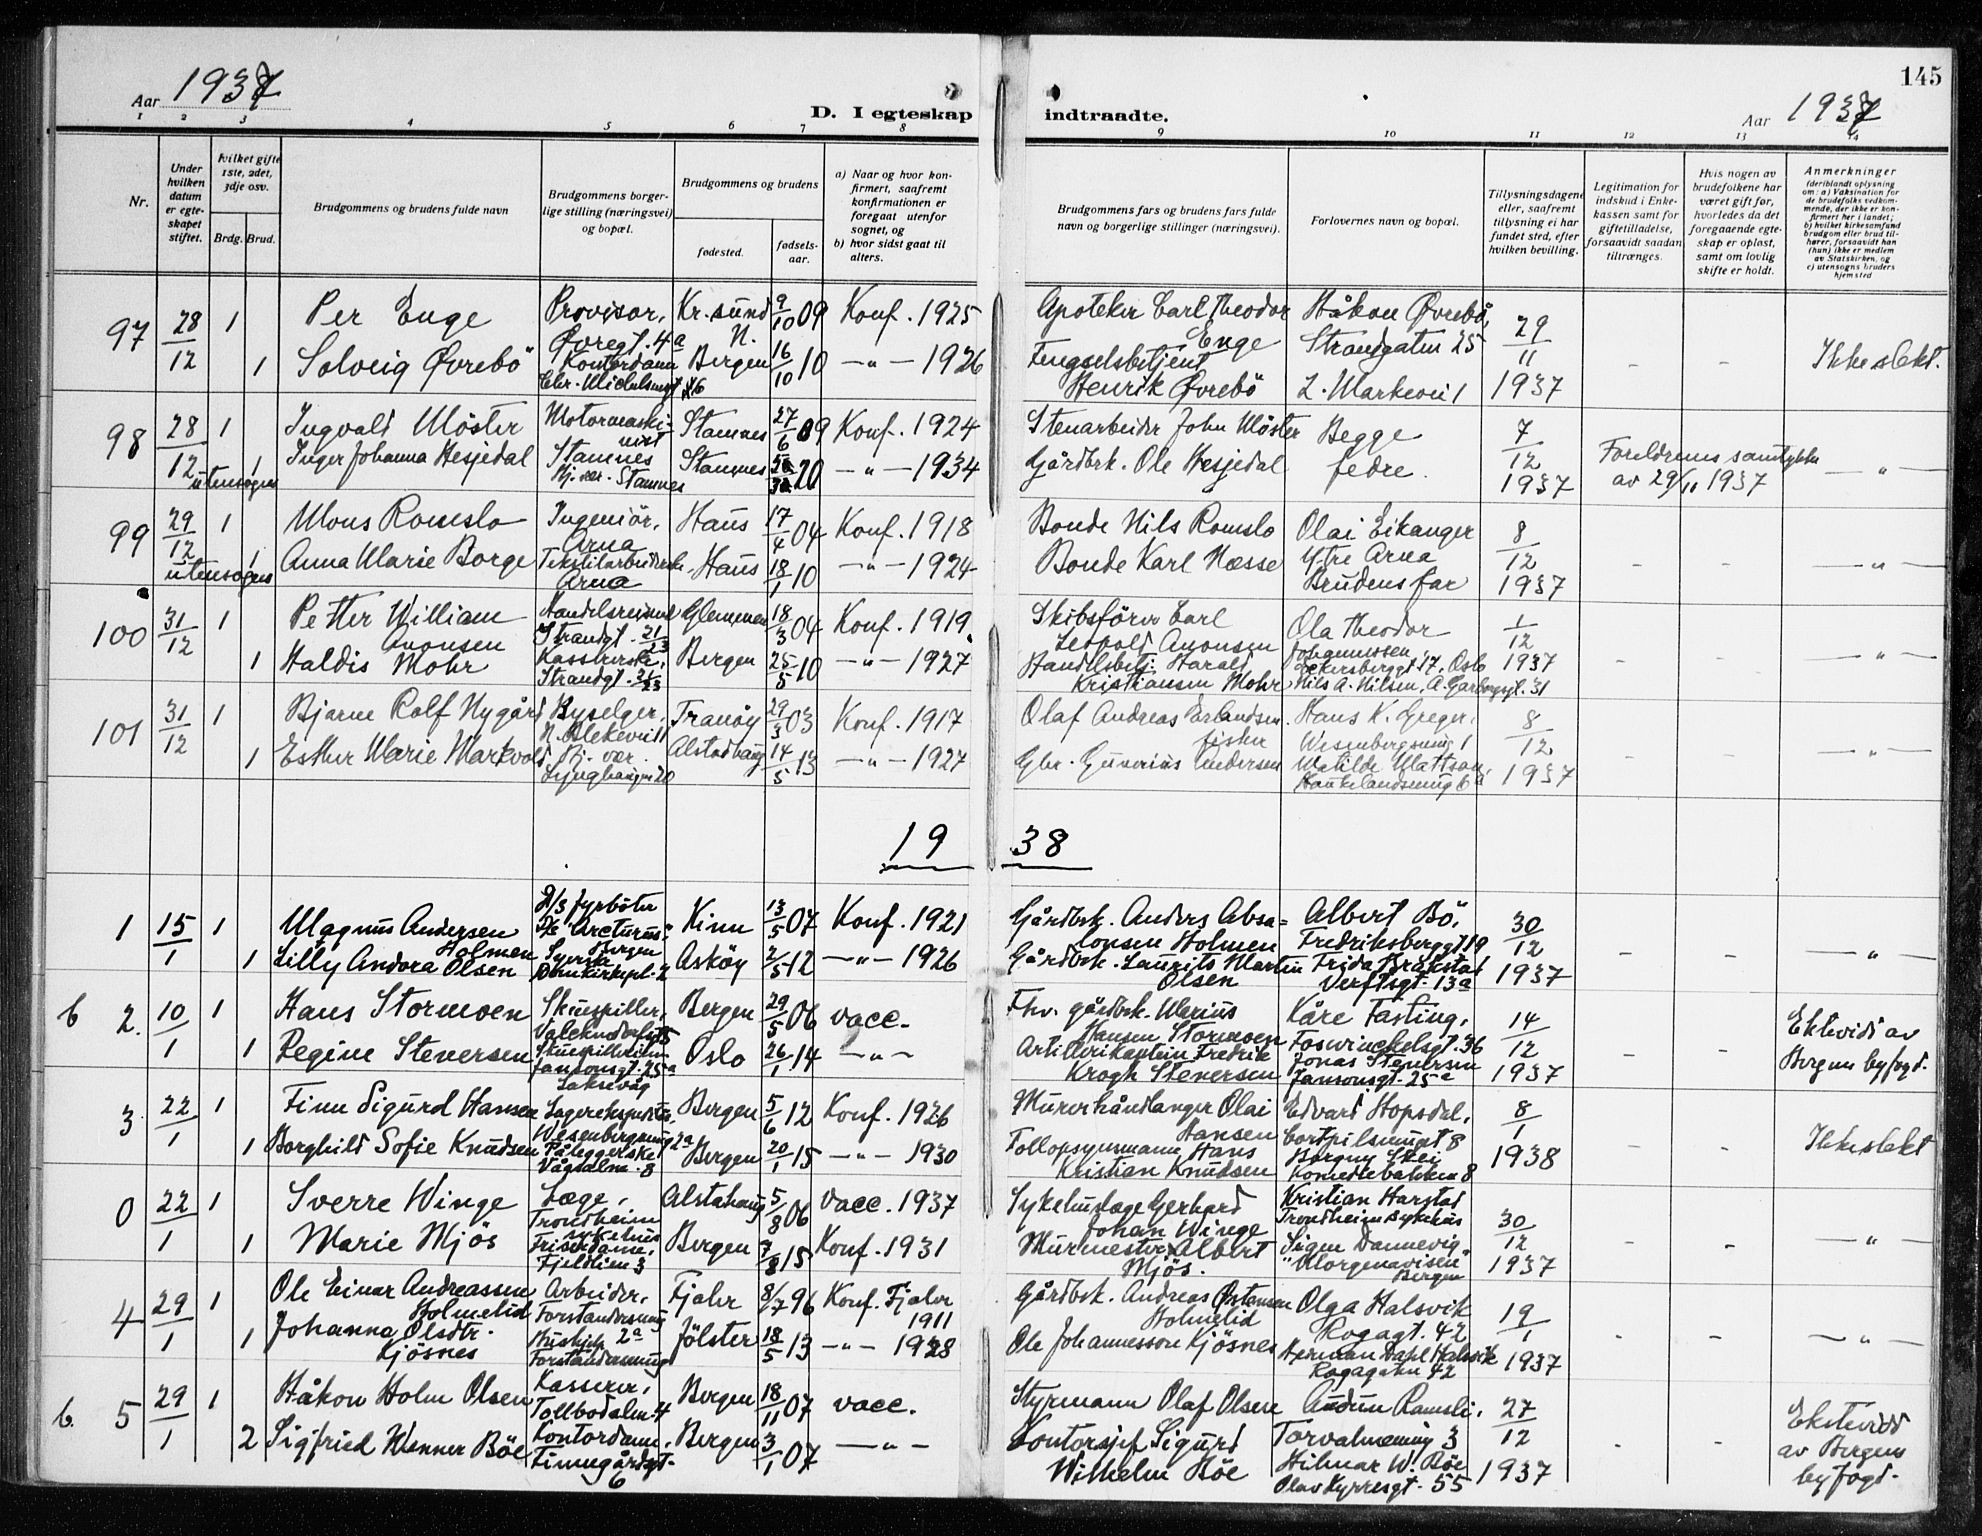 145
Aar 1937
D. I egteskap indtraadte.
Aar 1937
1 2 3 4 5 6 7 8 9 10 11 12 13 14
Nr.
Under hvilken datum er egteskapet stiftet.
hvilket gifte 1ste, 2det, 3dje osv.
Brdg. Brud.
Brudgommens og brudens fulde navn
Brudgommens borgerlige stilling (næringsvei) og bopæl.
Brudgommens og brudens
fødested.
fødselsaar.
a) Naar og hvor konfirmert, saafremt konfirmationen er foregaat utenfor sognet, og
b) hvor sidst gaat til alters.
Brudgommens fars og brudens fars fulde navn og borgerlige stillinger (næringsvei).
Forlovernes navn og bopæl.
Tillysningsdagene eller, saafremt tillysning ei har fundet sted, efter hvilken bevilling.
Legitimation for indskud i Enkekassen samt for giftetilladelse, forsaavidt saadan tiltrænges.
Hvis nogen av brudefolkene har været gift før, hvorledes da det foregaaende egteskap er opløst, samt om lovlig skifte er holdt.
Anmerkninger
(deriblandt oplysning om: a) Vaksination for de brudefolks vedkommende, der ikke er konfirmert her i landet; b) hvilket kirkesamfund brudgom eller brud tilhører, forsaavidt han (hun) ikke er medlem av Statskirken, og c) utensogns bruders hjemsted
97 28/12 1 Per Enge Provisor, Øvregt. 4a Kr.sund N. 9/10 09 Konf. 1925 Apoteker Carl Theodor Enge Håkon Øvrebö, Strandgaten 25 29/11 1937 - - Ikke slekt.
1 Solveig Øvrebö Kontordame Chr. Michelsensgt. Bergen 16/10 10 -"- 1926 Fengselsbetjent Henrik Øvrebö
98 28/12 utensogns 1 Ingvald Möster Motormaskinist Stamnes Stamnes 27/6 09 Konf. 1924 Stenarbeider John Möster Begge fedre. 7/12 1937 Foreldrenes samtykke av 29/11 1937 -"-
1 Inger Johanna Hesjedal Hj. vær. Stamnes Stamnes 20 -"- 1934 Gårdbrk. Ole Hesjedal
99 29/12 utensogns 1 Mons Romslo Ingeniör, Arna Haus 17/4 04 Konf. 1918 Bonde Nils Romslo Olai Eikanger Ytre Arna 8/12 1937 - - -"-
1 Anna Marie Borge Tekstilarbeiderske, Arna Haus 18/1 10 -"- 1924 Bonde Karl Næsse Brudens far
100 31/12 1 Petter William Aronsen Handelsreisende Strandgt. 21/23 Glemmen 18/3 04 Konf. 1919. Skibsförer Carl Leopold Aronsen Ola Theodor Johannessen, Eckersberggt 17, Oslo 1/12 1937 - - -"-
1 Haldis Mohr Kassererske, Strandgt. 21/23 Bergen 25/5 10 -"- 1927 Handelsbetj. Harald Kristiansen Mohr Nils A. Nilsen, A. Garborgsgt. 31
101 31/12 1 Bjarne Rolf Nygård Byselger, N. Blekevei 11 Tranöy 29/3 03 Konf. 1917 Olaf Andreas Erlandsen fisker Hans K. Greger, Wesenbergsmug 1 8/12 1937 - - -"-
1 Esther Marie Markvold Hj. vær. Alstadhaug 14/5 13 -"- 1927 Gbr. Gunerius Andersen Matilde Mattson, Haukelandsmug 6a
1938
1 15/1 1 Magnus Andersen Holmen D/S fyrböter D/S "Arcturus", Bergen Kinn 13/5 07 Konf. 1921 Gårdbrk. Anders Absalonsen Holmen Albert Bö, Fredriksberggt 19 30/12 1937 - - -"-
1 Lilly Andora Olsen Syerske Domkirkepl. 2 Asköy 2/5 12 -"- 1926 Gårdbrk. Laurits Martin Olsen Frida Brakstad Verftsgt. 13a
b 2. 10/1 1 Hans Stormoen Skuespiller, Bergen 29/5 06 vacc. Fhv. gårdbrk. Marius Hansen Stormoen Kåre Fasting, Foswinckelsgt. 36 14/12 1937 - - Ektevidd av Bergens byfogd.
1 Regine Stenersen Skuespillerinne Jansonsgt. 25a Laksevåg Oslo 26/1 14 -"- Artillerikaptein Fredrik Krogh Stenersen Jonas Stenersen Jansonsgt. 25a
3. 22/1 1 Finn Sigurd Hansen Lagerekspeditör, Wesenbergsmug 2a Bergen 5/6 12 Konf. 1926 Murerhåndlanger Olai Hansen Edvard Hopsdal, 8/1 1938 - - Ikke slekt
1 Borghild Sofie Knudsen Påleggerske Vågsalm. 8 Bergen 20/1 15 -"- 1930 Tollopsynsmann Hans Kristian Knudsen Borgny Skei Komediebakken 8
0 22/1 1 Sverre Winge Læge, Trondheim sykehus Alstahaug 5/8 06 vacc. 1937 Sykehuslæge Gerhard Johan Winge Kristian Harstad Trondheim Sykehus 30/12 1937 - - -"-
1 Marie Mjös Friserdame, Fjeldlien 3 Bergen 7/8 15 Konf. 1931 Murmester Albert Mjös. Sigm Dannevig, "Morgenavisen" Bergen
4 29/1 1 Ole Einar Andreassen Holmelid Arbeider, Forstandersmug 2a Fjaler 8/7 96 Konf. Fjaler 1911 Gårdbrk. Andreas Østensen Holmelid Olga Halsvik Rogagt. 42 19/1 1937 - - -"-
1 Johanna Olsdtr. Kjösnes Hushjelp Forstandersmug Jölster 18/5 13 -"- 1928 Ole Johannesson Kjösnes Herman Dahl Halsvik Rogagaten 42
b. 5 29/1 1 Håkon Holm Olsen Kasserer, Tollbodalm. 4 Bergen 18/11 07 vacc. Styrmann Olaf Olsen Audun Ramsli, Torvalmening 3 27/12 1937 - - Ektevidd av Bergens byfogd.
2 Sigfried Wenner Böe Kontordame, Finnegårdgt. 6 Bergen 3/1 07 -"- Kontorsjef Sigurd Wilhelm Böe Hilmar W. Böe Olav Kyrresgt. 55